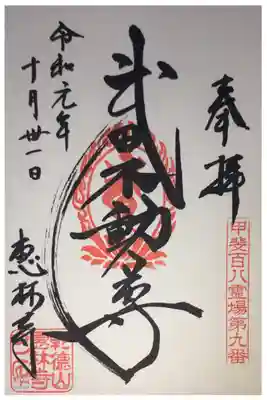 奉拝
甲斐百八霊場第九番
武田不動尊
令和元年
十月丗一日
恵林寺
乾徳山
恵林寺